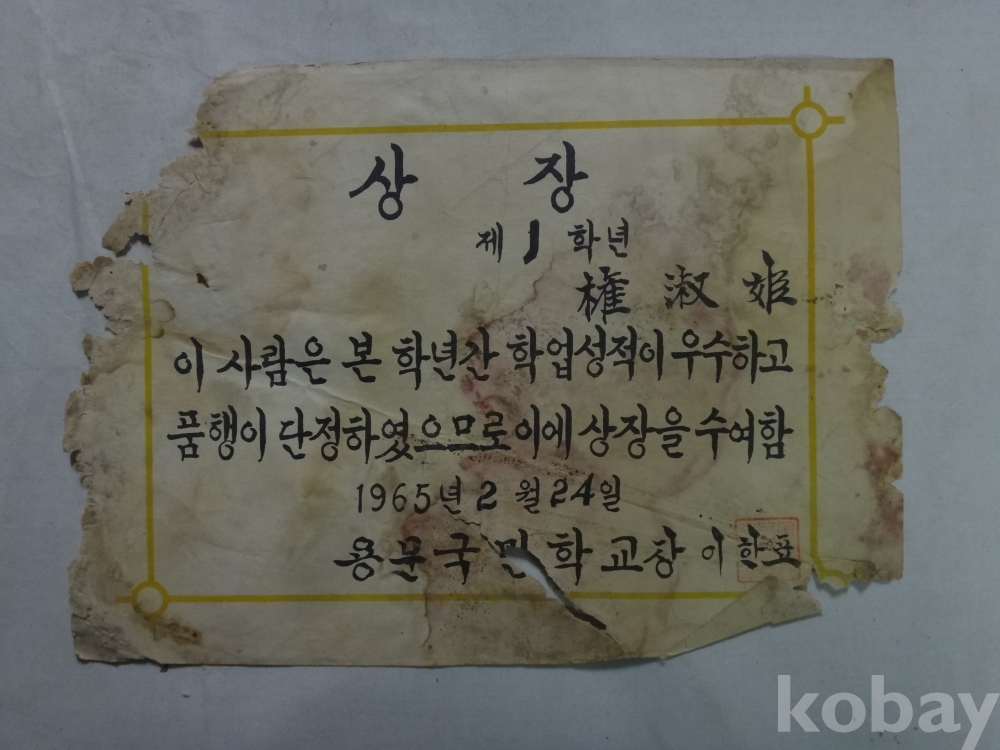 상 장
제 1 학년
權 淑 姬
이 사람은 본 학년간 학업성적이 우수하고
품행이 단정하였으므로 이에 상장을 수여함
1965년 2 월 24일
용문국민학교장 이 한표
kobay